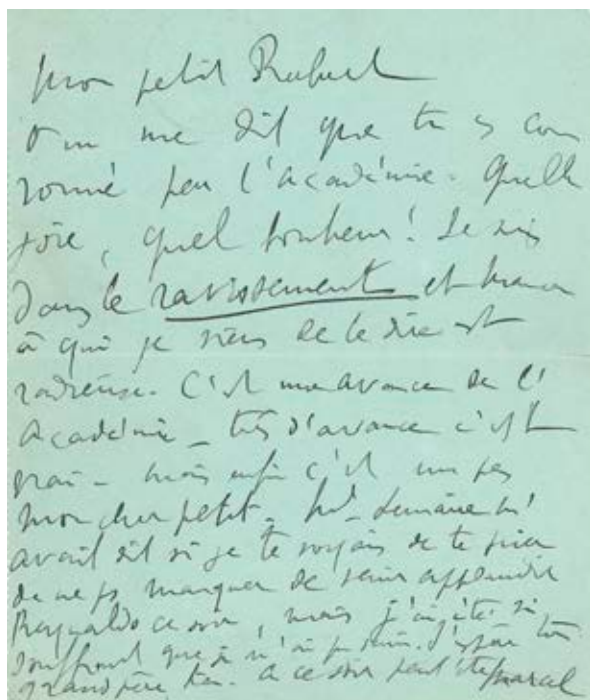 Mon petit Robert
On me dit que tu es cou
ronné par l'Académie. Quelle
joie, quel bonheur ! Je suis
dans le ravissement et maman
à qui je viens de le dire est
radieuse. C'est une avance de l'
Académie _ très d'avance c'est
vrai _ mais enfin c'est un pas
mon cher petit _ Lemaire m'
avait dit si je te voyais de te prier
de ne pas manquer de venir applaudir
Reynaldo ce soir, mais j'ai été si
souffrant que je n'ai pu J'espère ton
grand père bien. A ce soir peut'être Marcel